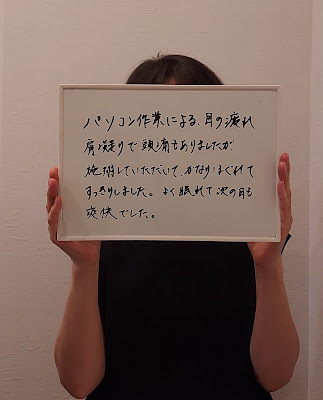 パソコン作業による、目の疲れ
肩凝りで頭痛もありましたが
施術していただいて、かなりほぐれて
すっきりしました。よく眠れて次の日も
爽快でした。